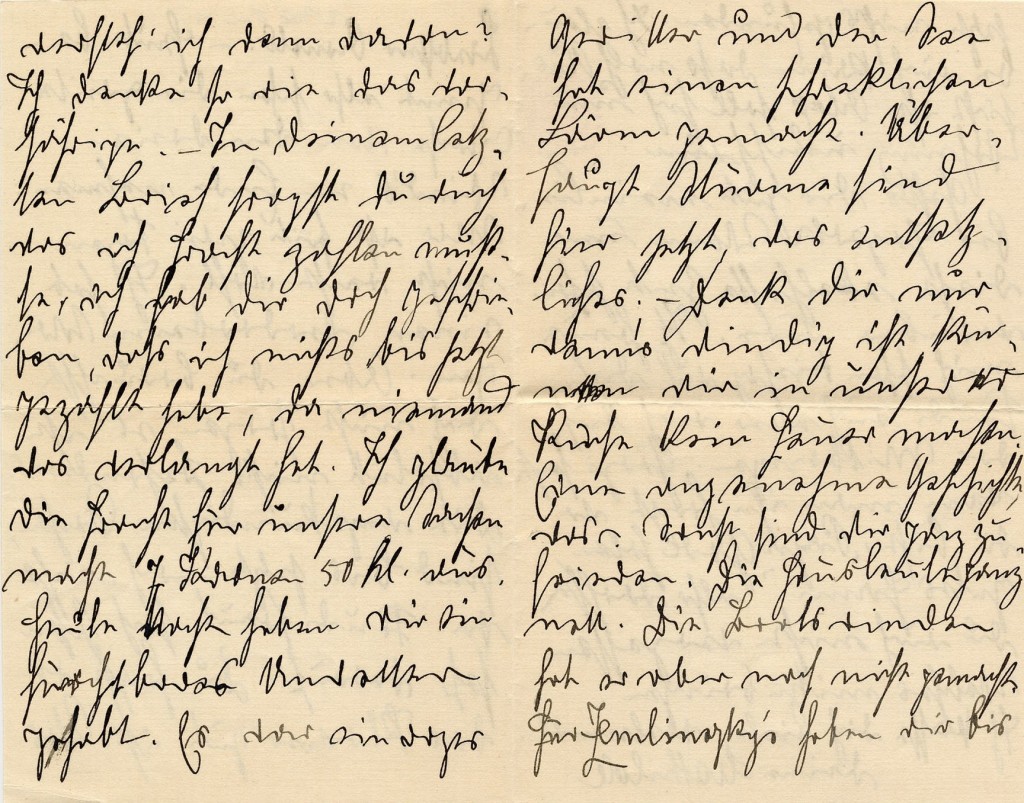 versteh' ich denn davon?
Ich denke so wie das vor-
jährige. – In deinem letz-
ten Brief fragst du auch
was ich Fracht zahlen muß-
te, ich hab dir doch geschrie-
ben, dass ich nichts bis jetzt
gezahlt habe, da niemand
das verlangt hat. Ich glaube
die Fracht für unsere Sachen
macht 7 Kronen 50 hl. aus.
Heute Nacht haben wir ein
furchtbares Unwetter
gehabt. Es war ein arges
Gewitter und der See
hat einen schrecklichen
Lärm gemacht. Über-
haupt Stürme sind
hier jetzt, was entsetz-
liches. – Denk dir nur
wenn's windig ist kön-
nen wir in unserer
Küche kein Feuer machen.
Eine angenehme Geschichte
das. Sonst sind wir ganz zu-
frieden. Die Hausleute ganz
nett. Die
hat er aber noch nicht gemacht.
Für Zemlinszky's haben wir bis